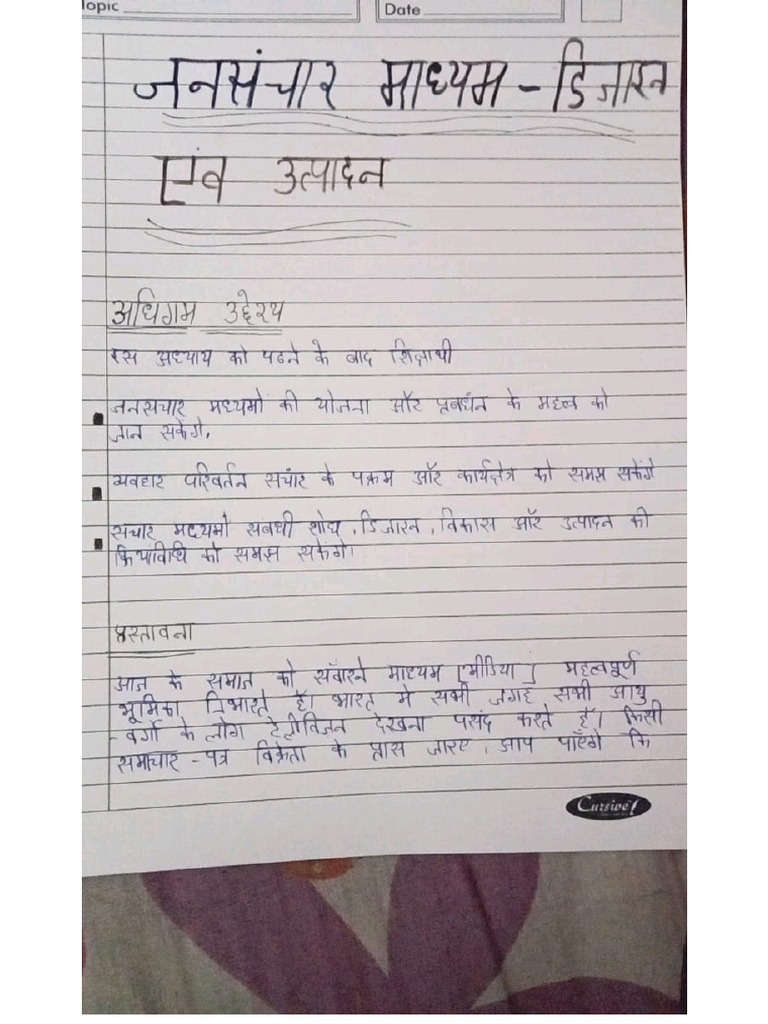 Topic
Date
जनसंचार माध्यम - डिजाइन
एंव उत्पादन
अधिगम उद्देश्य
इस अध्याय को पढने के बाद शिक्षार्थी
जनसचार मध्यमो की योजना और प्रबधंन के महत्व को
जान सकेंगे,
व्यवहार परिवर्तन सचांर के पक्रम और कार्यक्षेत्र को समझ सकेंगे
सचार मध्यमो सबधी शोध, डिजाइन, विकास और उत्पादन की
क्रियाविधि को समझ सकेंगे।
प्रस्तावना
आज के समाज को सँवारने माध्यम [मीडिया] महत्वपूर्ण
भूमिका निभाते है। भारत मे सभी जगह सभी आयु
-वर्गो के लोग टेलीविजन देखना पसंद करते है। किसी
समाचार - पत्र विक्रेता के पास जाइए, आप पाएँगे कि
Cursive